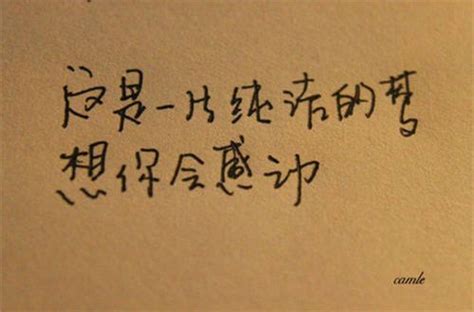 这是一片纯洁的梦
想你会感动
camle